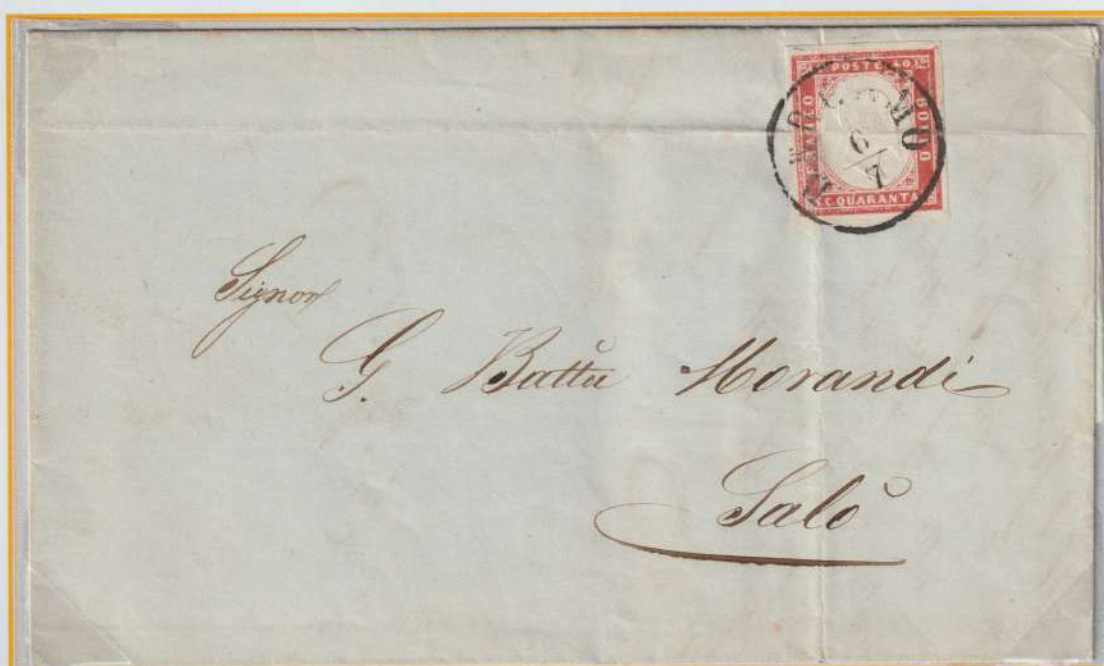 POSTE 40
FRANCO
BOLLO
C QUARANTA
BERGAMO
6/7
Signor
G. Batta Morandi
Salò